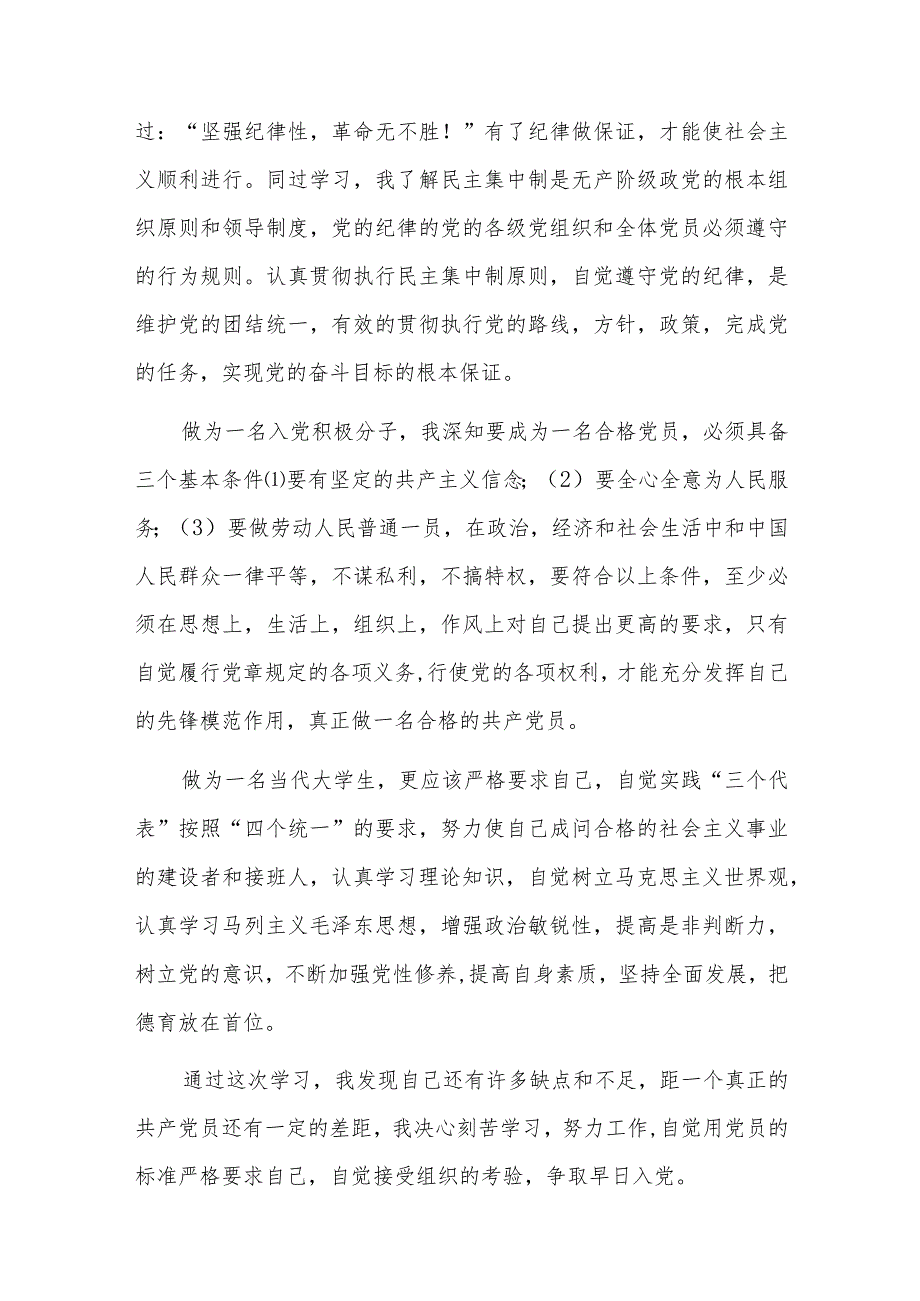 过：“坚强纪律性，革命无不胜！”有了纪律做保证，才能使社会主
义顺利进行。同过学习，我了解民主集中制是无产阶级政党的根本组
织原则和领导制度，党的纪律的党的各级党组织和全体党员必须遵守
的行为规则。认真贯彻执行民主集中制原则，自觉遵守党的纪律，是
维护党的团结统一，有效的贯彻执行党的路线，方针，政策，完成党
的任务，实现党的奋斗目标的根本保证。
做为一名入党积极分子，我深知要成为一名合格党员，必须具备
三个基本条件⑴要有坚定的共产主义信念；（2）要全心全意为人民服
务；（3）要做劳动人民普通一员，在政治，经济和社会生活中和中国
人民群众一律平等，不谋私利，不搞特权，要符合以上条件，至少必
须在思想上，生活上，组织上，作风上对自己提出更高的要求，只有
自觉履行党章规定的各项义务,行使党的各项权利，才能充分发挥自己
的先锋模范作用，真正做一名合格的共产党员。
做为一名当代大学生，更应该严格要求自己，自觉实践“三个代
表”按照“四个统一”的要求，努力使自己成问合格的社会主义事业
的建设者和接班人，认真学习理论知识，自觉树立马克思主义世界观，
认真学习马列主义毛泽东思想，增强政治敏锐性，提高是非判断力，
树立党的意识，不断加强党性修养,提高自身素质，坚持全面发展，把
德育放在首位。
通过这次学习，我发现自己还有许多缺点和不足，距一个真正的
共产党员还有一定的差距，我决心刻苦学习，努力工作,自觉用党员的
标准严格要求自己，自觉接受组织的考验，争取早日入党。